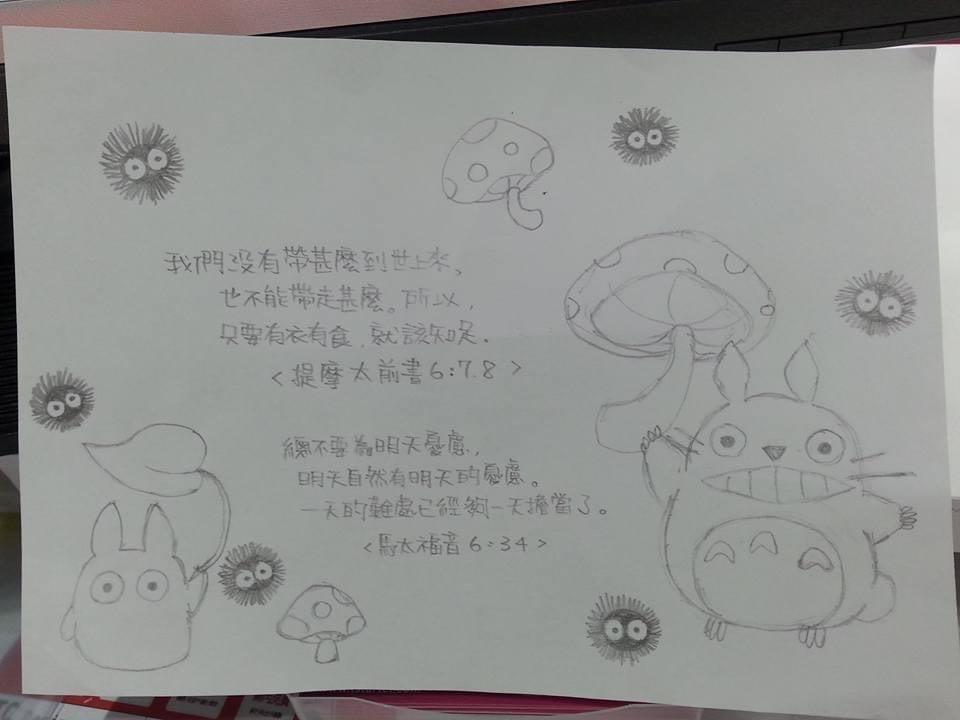 我們沒有帶甚麼到世上來、
也不能帶走甚麼。所以，
只要有衣有食，就該知足。
<提摩太前書6:7.8>
總不要為明天憂慮，
明天自然有明天的憂慮。
一天的難處已經夠一天擔當了。
<馬太福音6:34>